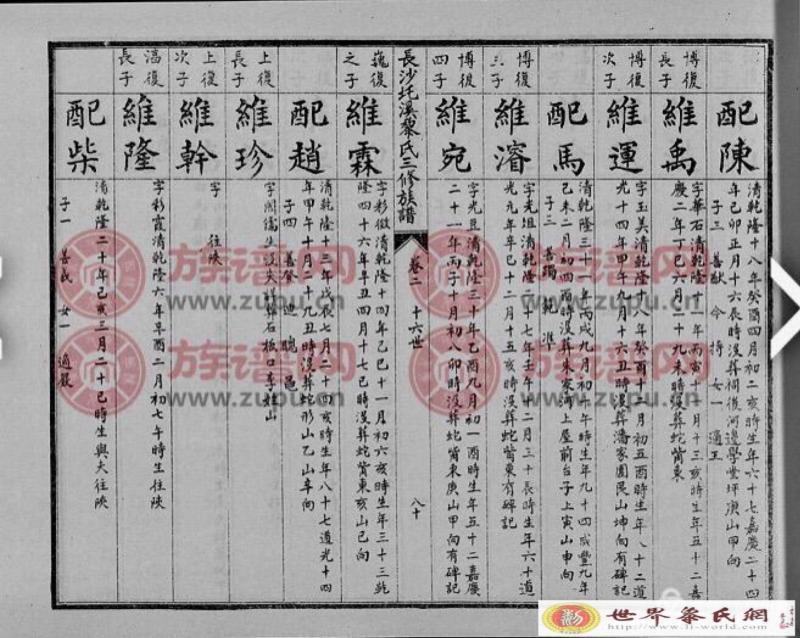 配陳
清乾隆十八年癸酉四月初二亥時生年六十七嘉慶二十四
年己卯正月十六辰時没葬祠後河邊學堂坪庚山甲向
子三 善猷 令 持 女一 適王
博復
長子
維禹
字華石清乾隆十一年丙寅十一月十三亥時生年五十二嘉
慶二年丁巳六月二十九未時没葬蛇背東
博復
次子
維運
字玉美清乾隆十八年癸酉十二月初五酉時生年八十二道
光十四年甲午九月十六丑時没葬潘家園艮山坤向有碑記
配馬
清乾隆三十一年丙戌九月初十午時生年九十四咸豐九年
己未二月初四酉時没葬朱家灣上屋前台子上寅山申向
子三
博復
三子
維濬
字光垣清乾隆二十七年壬午十二月三十辰時生年六十道
光元年辛巳十二月十五亥時没葬蛇背東有碑記
博復
四子
維宛
字光亘清乾隆三十年乙酉九月初一酉時生年五十二嘉慶
二十一年丙子十月初八卯時没葬蛇背東庚山甲向有碑記
長沙圫溪黎氏三修族譜
卷二 十六世
八十
巍復
之子
維霖
字彩徵清乾隆十四年己巳十一月初六亥時生年三十三乾
隆四十六年辛丑四月十七巳時没葬蛇背東亥山巳向
配趙
清乾隆十三年戊辰七月二十四亥時生年八十七道光十四
年甲午十月二十九丑時没葬蛇形山乙山辛向
子四 善登 迪 聰 邑
上復
長子
維珍
上復
次子
維幹
字 往陝
滈復
長子
維隆
字彩霞清乾隆六年辛酉二月初七午時生往陝
配柴
清乾隆二十年乙亥三月二十巳時生與夫往陝
子一 善成 女一 適嚴
族谱网
www.zupu.cn
世界黎氏網
http://www.li-world.com